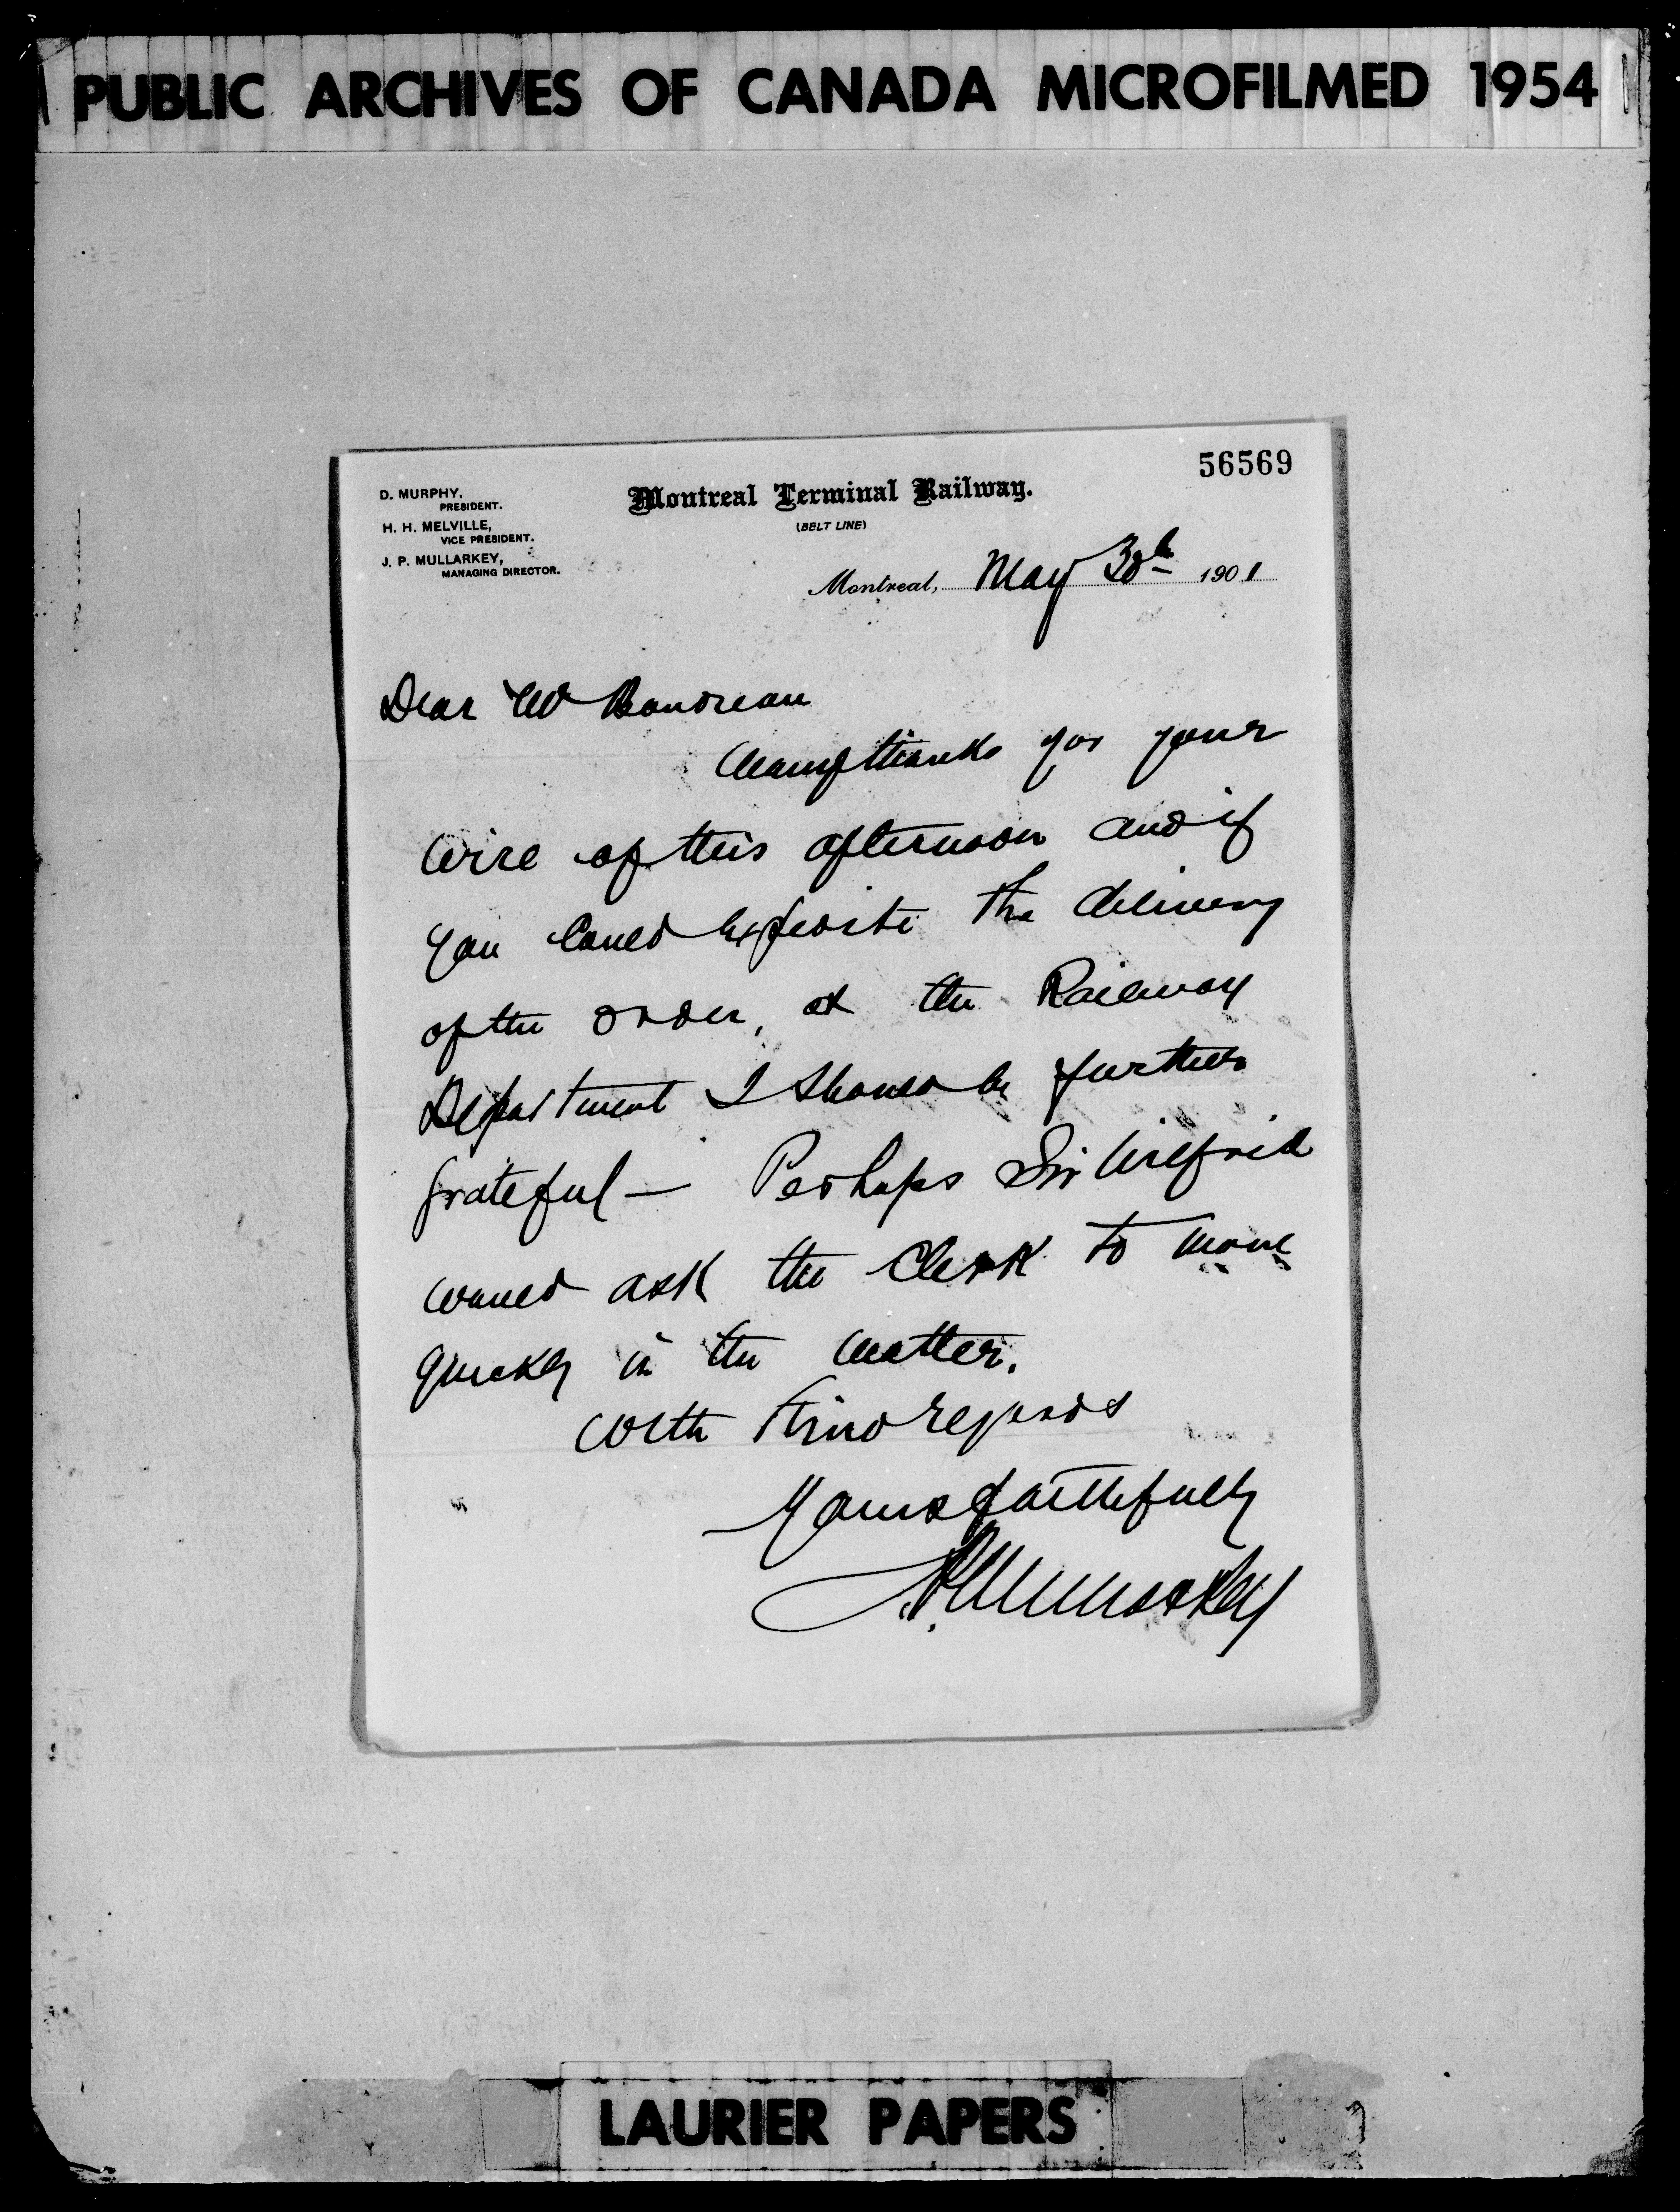 PUBLIC ARCHIVES OF CANADA MICROFILMED 1954
56569
D. MURPHY,
PRESIDENT.
H. H. MELVILLE,
VICE PRESIDENT.
J. P. MULLARKEY,
MANAGING DIRECTOR.
Montreal Terminal Railway.
(BELT LINE)
Montreal, May 30th 1901
Dear Mr Boudreau
Many thanks for your
wire of this afternoon and if
you could expedite the delivery
of the order, at the Railway
Department I should be further
grateful — Perhaps Sir Wilfrid
would ask the Clerk to move
quickly in the matter.
With Kind regards
Yours faithfully
J.P. Mullarkey
LAURIER PAPERS